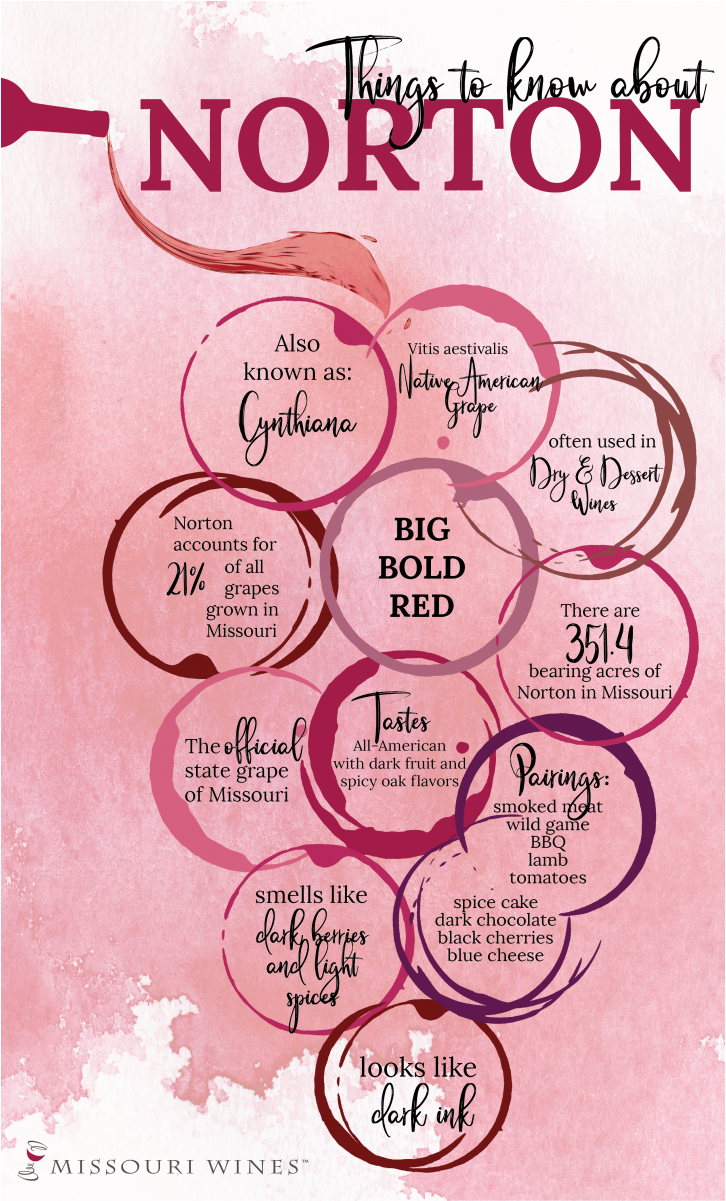 Things to know about
NORTON
Also
known as:
Cynthiana
Vitis aestivalis
Native American
Grape
often used in
Dry & Dessert
Wines
Norton
accounts for
21% of all
grapes
grown in
Missouri
BIG
BOLD
RED
There are
351.4
bearing acres of
Norton in Missouri
The official
state grape
of Missouri
Tastes
All-American
with dark fruit and
spicy oak flavors
Pairings:
smoked meat
wild game
BBQ
lamb
tomatoes
spice cake
dark chocolate
black cherries
blue cheese
smells like
dark berries
and light
spices
looks like
dark ink
MISSOURI WINES™